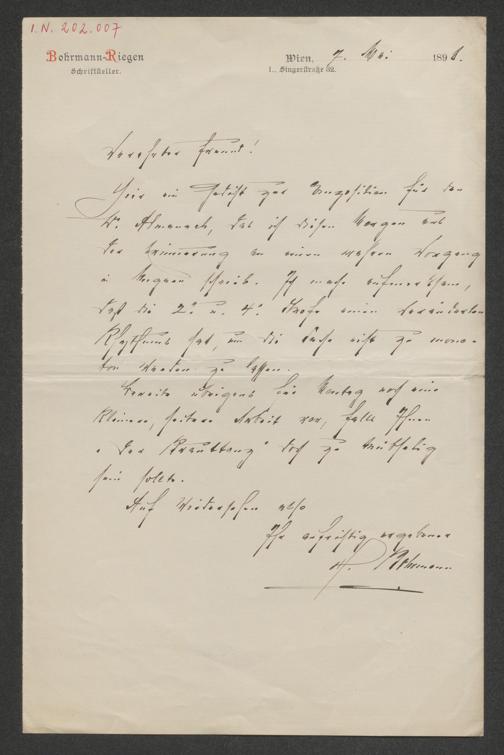 I.N. 202.007
Bohrmann-Riegen
Schriftsteller.
Wien, 7. Mai 1891.
I., Singerstraße 32.
Verehrter Freund!
Hier ein Gedicht zur Composition für den
W. Almanach, das ich diesen Morgen aus
der Erinnerung an einen wahren Vorgang
in Ungarn schrieb. Ich mache aufmerksam,
daß die 2te u. 4te Strofe einen veränderten
Rhythmus hat, um die Sache nicht zu mono-
ton werden zu lassen.
Bereite übrigens bis Montag noch eine
kleinere, heitere Arbeit vor, falls Ihnen
"Der Brauttanz" doch zu trübselig
sein sollte.
Auf Wiedersehen also
Ihr aufrichtig ergebener
H. Bohrmann